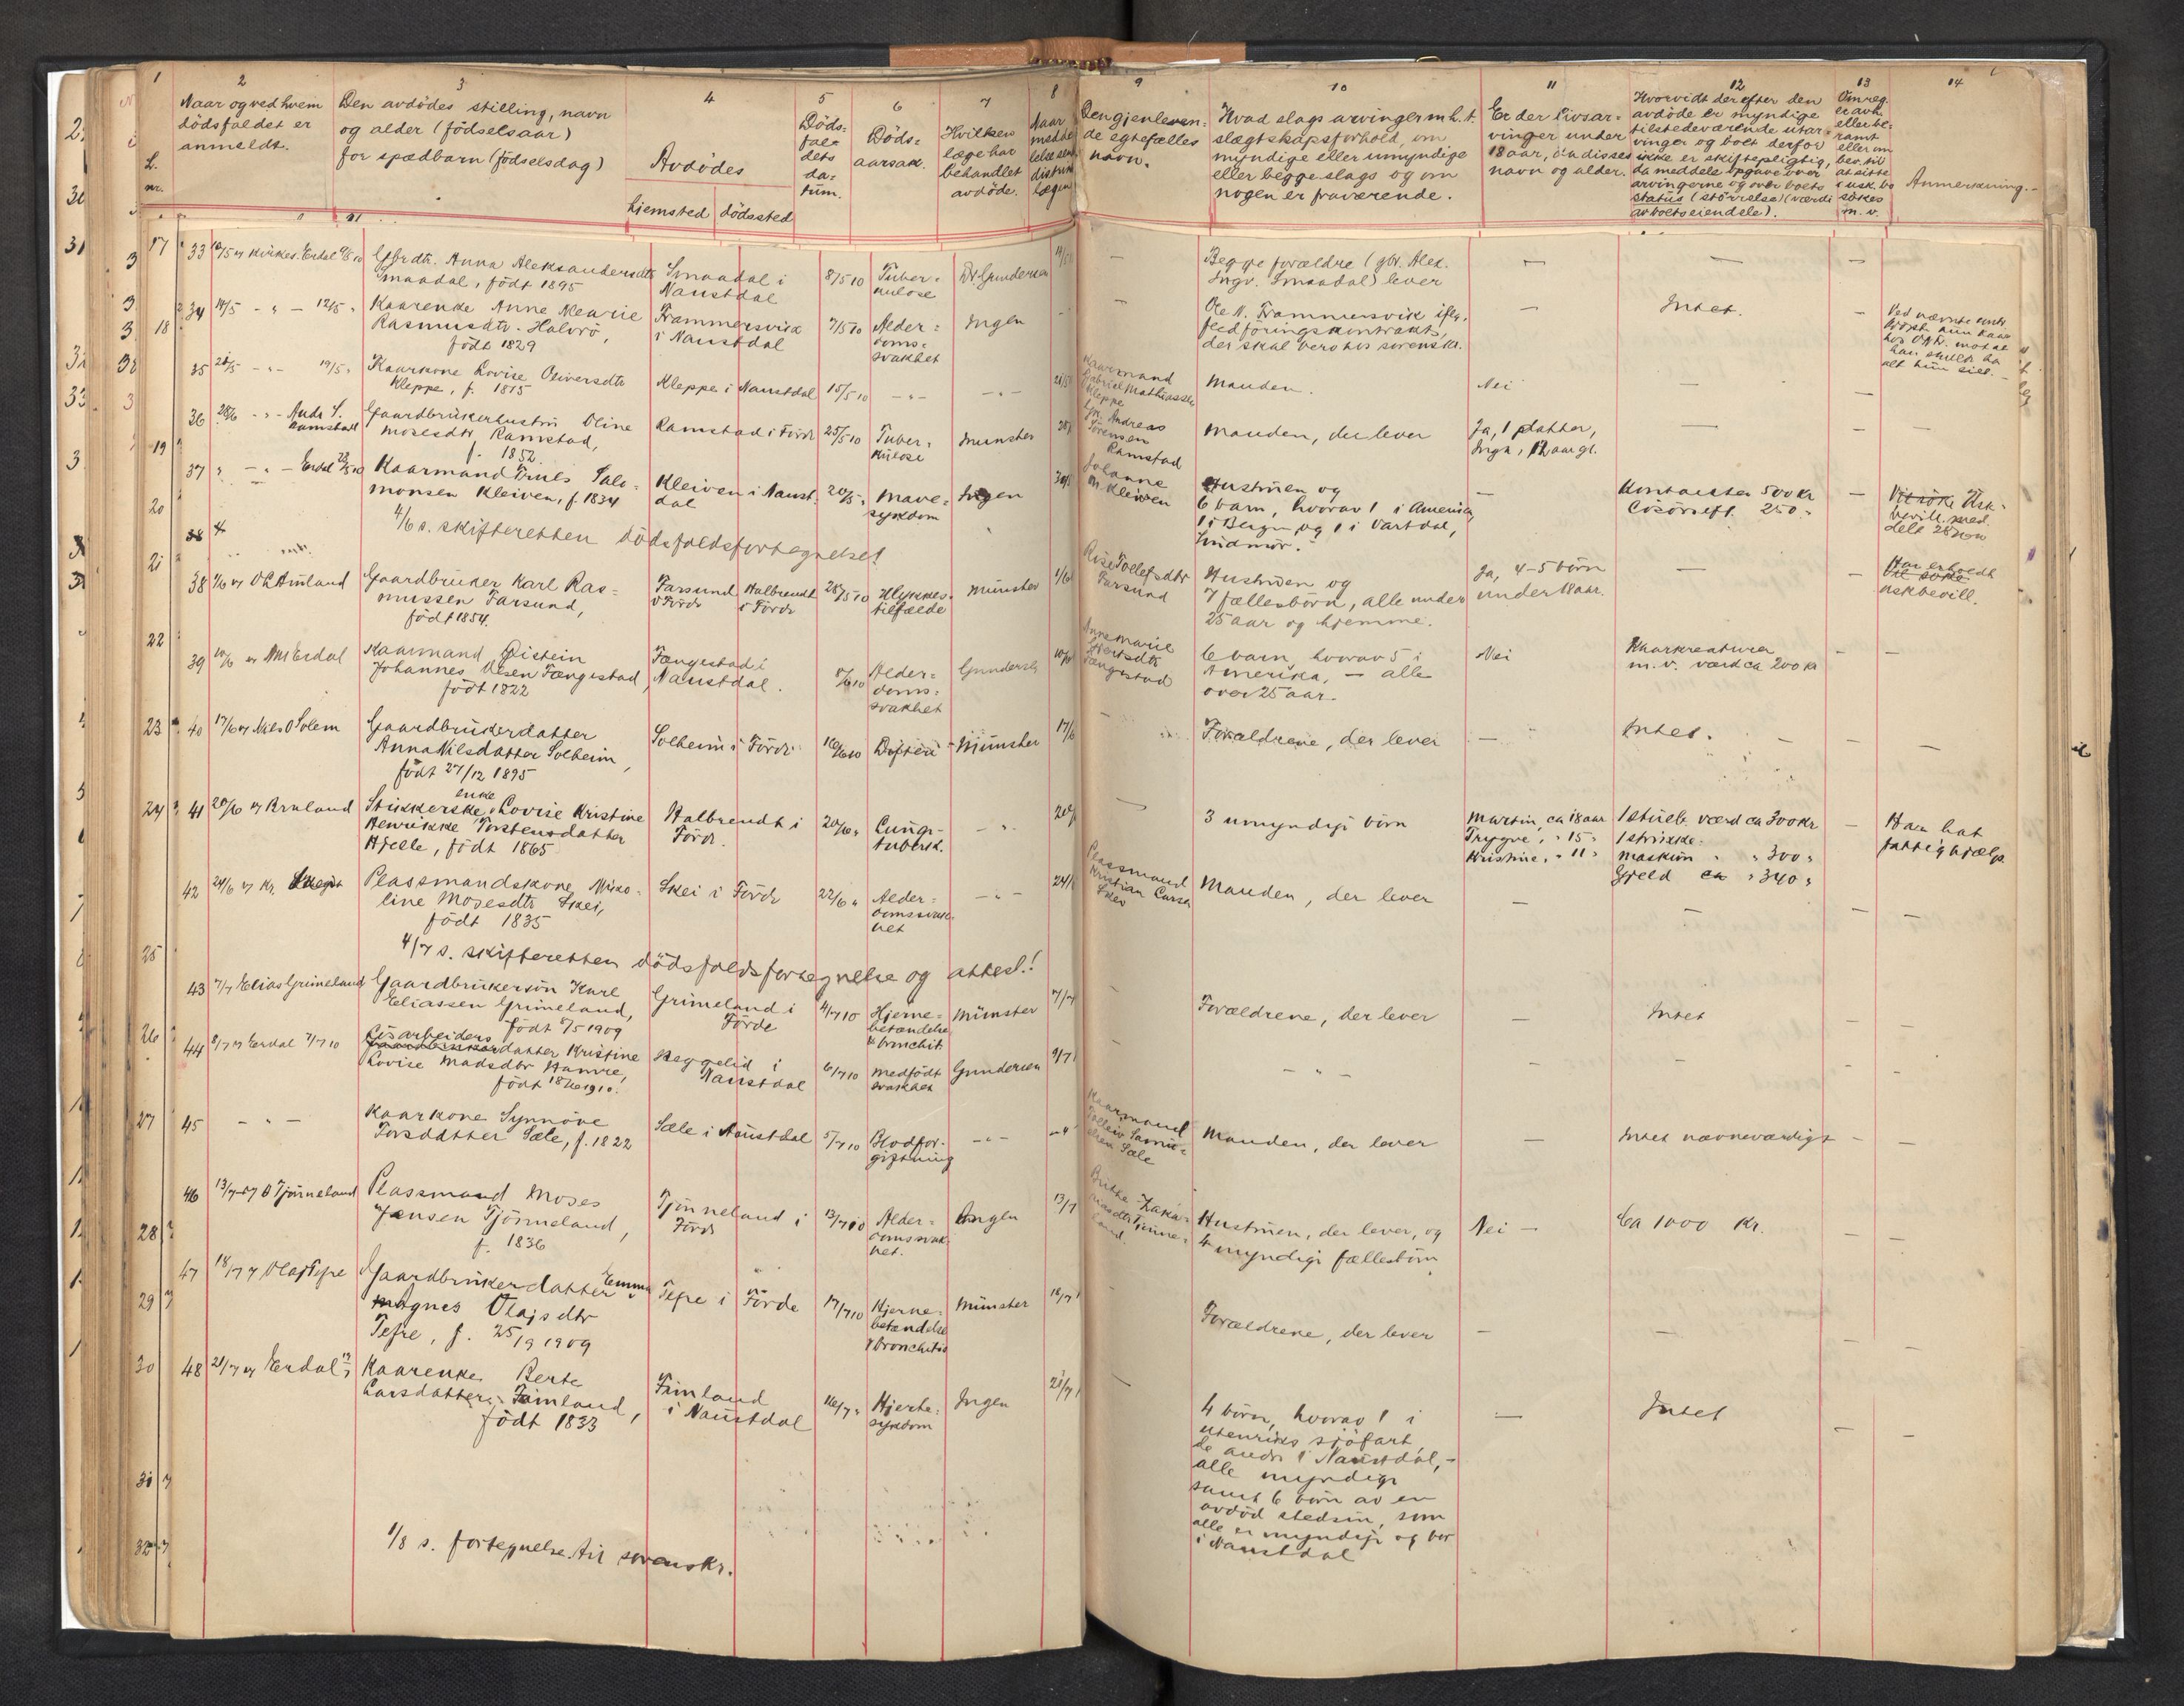 1 2 3 4 5 6 7 8 9 10 11 12 13 14
L. nr.
Naar og ved hvem
dödsfaldet er
anmeldt.
Den avdödes stilling, navn
og alder (födselsaar)
for spædbarn (födselsdag)
Avdödes
hjemsted dödssted
Döds-
fal-
dets
da-
tum.
Döds-
aarsak.
Hvilken
læge har
behandlet
avdöde.
Naar
medde
lelse sen
distrik
lægen
Den gjenleven-
de egtefælles
navn.
Hvad slags arvinger m.h.t.
slægtskapsforhold, om
myndige eller umyndige
eller begge slags og om
nogen er fraværende.
Er der livsar-
vinger under
18 aar, da disses
navn og alder.
Hvorvidt der efter den
avdöde er myndige
tilstedeværende utar-
vinger og boet derfor
ikke er skiftepligtig,
da meddels opgave over
arvingerne og over boets
status (störrelse) (værdi
av boets eiendele).
Om reg.
er avh.
eller be-
ramt
eller om
bev. til
at sitte
i usk. bo
sökes
m. v.
Anmerkning.
33 10/5 v kirkes. Erdal
Gbrdtr. Anna Aleksandersdtr
Smaadal, födt 1895
Smaadal i
Naustdal
8/5 10
Tuber-
kulose
Dr Gundersen
—
Begge forældre (gbr. Alex.
Ingv. Smaadal) lever
— — —
34 14/5 - " - 12/5 "
Kaarenke Anne Marie
Rasmusdtr. Halvrö,
födt 1829
Frammersvik
i Naustdal
7/5 10
Alder-
doms-
svakhet
Ingen
—
Ole N. Frammersvik ifлg.
födföringskontrakt,
der skal bero hos sorenskr.
—
Intet.
—
Ved nævnte
35 21/5 - " - 19/5 "
Kaarkone Lovise Oliversdtr
Kleppe, f. 1815
Kleppe i Naustdal
15/5 10
- " -
- " -
Kaarmand
Gabriel Mathiassen
Kleppe
Manden.
Nei
— —
36 28/5 - " - Andr S.
Ramstad
Gaardbrukerhustru Oline
Mosesdtr Ramstad,
f. 1852.
Ramstad i Förde
25/5 10
Tuber-
kulose
Munster
Gbr. Andreas
Sörensen
Ramstad
Manden, der lever
Ja, 1 datter,
Inga, 12 aar gl.
— — —
37 " - " - Erdal 28/5 10
Kaarmand Truls Salo-
monsen Kleiven, f. 1834
Kleiven i Naust-
dal
20/5 "
Mave-
sykdom
Ingen
Johanne
M. Kleiven
Hustruen og
6 barn, hvorav 1 i Amerika,
1 i Bergen og 1 i Vartdal,
Sündmör.
—
Kontanter 500 kr
Lösöreeft. 250 "
—
Vil söke Usk-
bevill. med-
delt 28 nov
4/6 s. skifteretten dödsfaldsfortegnelse!
38 1/6 v O L Hünland
Gaardbruker Karl Ras-
mussen Farsund,
födt 1854.
Farsund
i Förde
Halbrendt
i Förde
28/5 10
Ulykkes-
tilfælde
Münster
Farsund
Hustruen og
7 fællesbörn, alle under
25 aar og hjemme.
Ja, 4-5 börn
under 18 aar.
— —
Har erholdt
Vil söke
uskbevill.
39 10/6 v Erdal
Kaarmand Öistein
Johannes Olsen Fængestad,
födt 1822
Fængestad i
Naustdal.
8/6 10
Alder-
doms-
svakhet
Gundersen
Annemarie
Sjursdtr
Fængestad
6 barn, hvorav 5 i
Amerika, — alle
over 25 aar.
Nei
Kaarkreaturer
m. v. værd ca 200 kr
— —
40 17/6 v Nils O Solem
Gaardbrukerdatter
Anna Nilsdatter Solheim,
födt 27/12 1895
Solheim i Förde
16/6 10
Difteri
Münster
17/6
—
Forældrene, der lever
—
Intet.
— —
41 20/6 v Bruland
Strikkerske, enke Lovise Kristine
Henrikke Torstensdatter
Hjelle, födt 1865
Halbrendt i
Förde.
20/6 "
Lunge-
tuberk.
- " -
—
3 umyndige börn
Martin, ca 18 aar
Trygve, " 15 "
Kristine, " 11 "
1 stueb. værd ca 300 kr
1 strikke-
maskin " " 300 "
Gjeld ca " 340 "
—
Har hat
fattighjælp
42 24/6 v Kr. Skei
Plassmandskone Niko-
line Mosesdtr Skei,
födt 1835
Skei i Förde
22/6 "
Alder-
domssvak-
het
- " -
Plassmand
Kristian Larsen
Skei
Manden, der lever
— — — —
4/7 s. skifteretten dödsfaldsfortegnelse og attest.!
43 7/7 Elias Grimeland
Gaardbrukersön Karl
Eliassen Grimeland,
födt 8/5 1909
Grimeland i
Förde
4/7 10
Hjerne-
betændelse
& bronchit.
Münster
7/7
—
Forældrene, der lever
—
Intet
— —
44 8/7 v Erdal 7/7 10
Lösarbeiders
Gaardbrukerdatter Kristine
Lovise Madsdtr Hamre,
födt 18/6 1910.
Skeggelid i
Naustdal
6/7 10
Medfödt
svakhet
Gundersen
9/7
—
- " -
— — —
45 - " -
Kaarkone Synnöve
Larsdatter Sæle, f. 1822
Sæle i Naustdal
5/7 10
Blodfor-
giftning
- " -
Kaarmand
Tolleiv Samu-
elsen Sæle
Manden, der lever
—
Intet nævneværdigt
— —
46 13/7 v O Tjönneland
Plassmand Moses
Jensen Tjönneland,
f. 1836
Tjönneland i
Förde
13/7 10
Alder-
domssvak-
het.
Ingen
13/7
Brithe Zaka-
riasdtr Tjönne-
land.
Hustruen, der lever, og
4 myndige fællesbörn
Nei —
Ca 1000 Kr.
— —
47 18/7 v Olaj Tefre
Gaardbrukerdatter Emma
Agnes Olajsdtr
Tefre, f. 25/9 1909
Tefre i Förde
17/7 10
Hjerne-
betændelse
& bronchitis
Münster
18/7
—
Forældrene, der lever
— — — —
48 21/7 v Erdal
Kaarenke Berte
Larsdatter Fimland,
födt 1833
Fimland
i Naustdal
16/7 "
Hjerte-
sykdom
Ingen
21/7
—
4 börn, hvorav 1 i
utenriks sjöfart,
de andre i Naustdal, —
alle myndige
samt 6 börn av en
avdöd stedsön, som
alle er myndige og bor
i Naustdal
—
Intet
— —
1/8 s. fortegnelse til sorenskr.